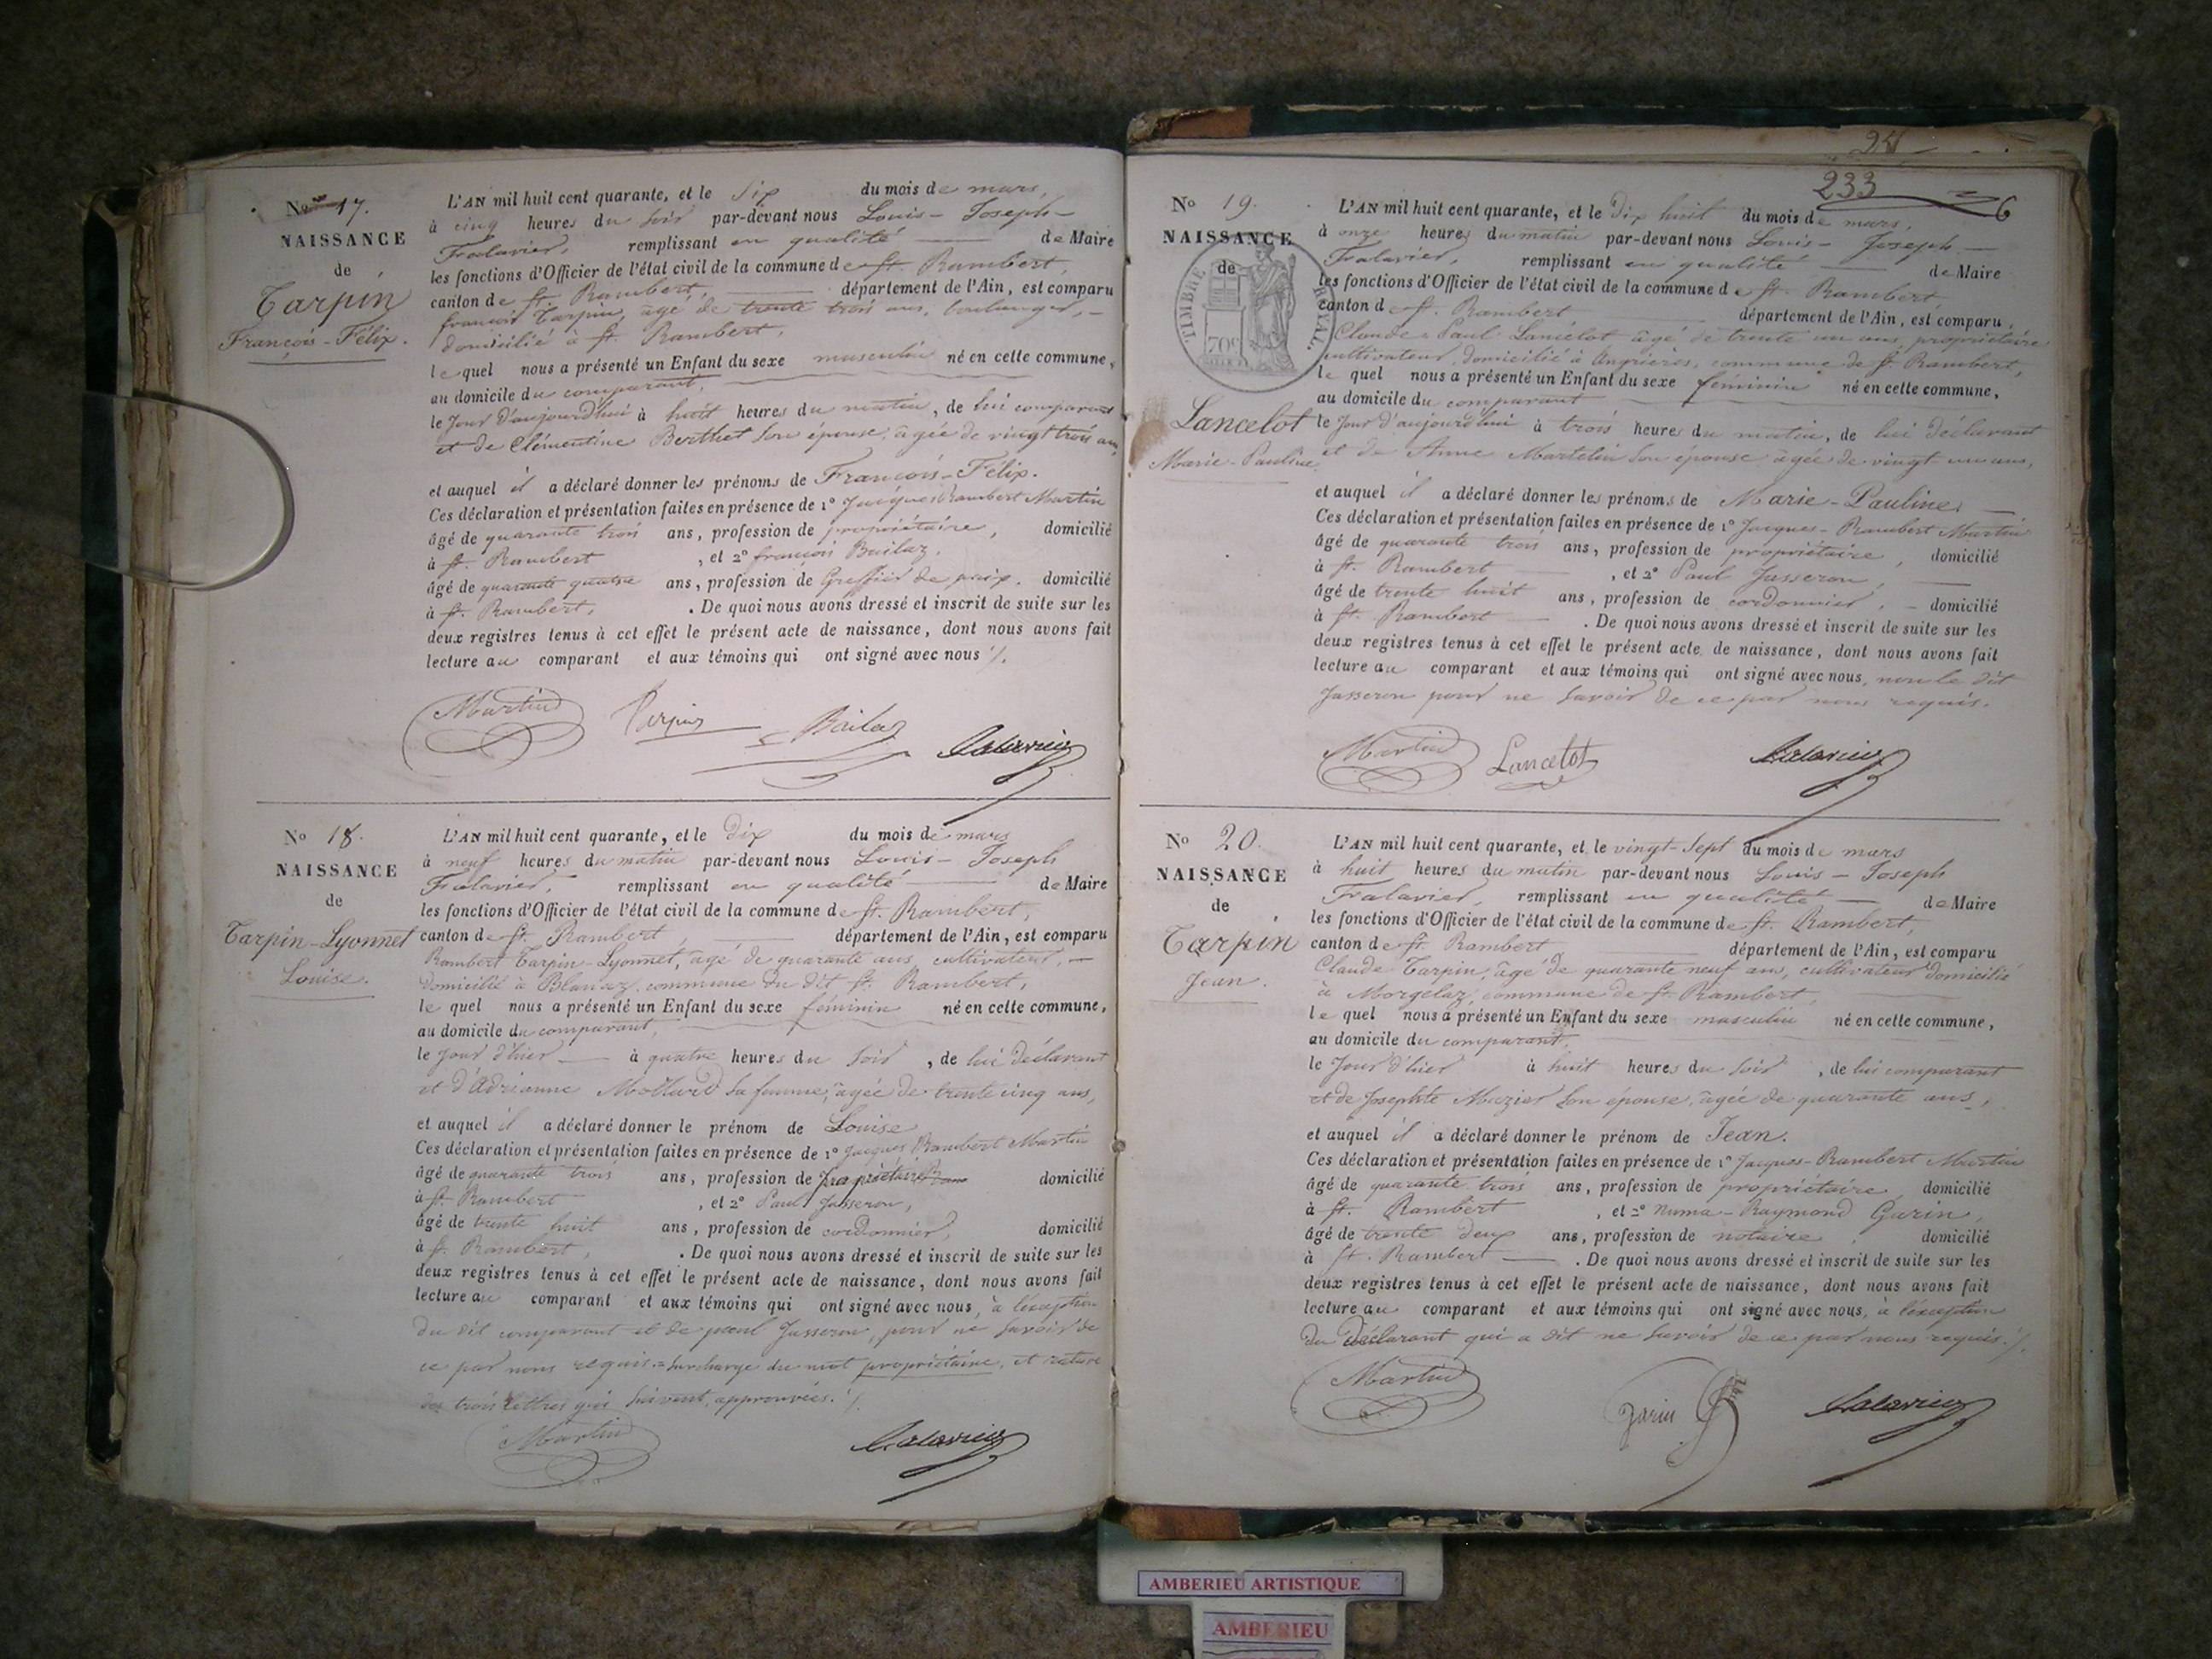 No 17.
NAISSANCE
de
Tarpin
François-Félix.
L'AN mil huit cent quarante, et le six du mois de mars,
à cinq heures du soir par-devant nous Louis-Joseph-
Fralavier, remplissant en qualité de Maire
les fonctions d'Officier de l'état civil de la commune de St. Rambert,
canton de St. Rambert, département de l'Ain, est comparu
françois Tarpin, âgé de trente trois ans, boulanger,
domicilié à St. Rambert,
lequel nous a présenté un Enfant du sexe masculin né en cette commune,
au domicile du comparant,
le jour d'aujourd'hui à huit heures du matin, de lui comparant
et de Clémentine Berthet son épouse, âgée de vingt trois ans,
et auquel il a déclaré donner les prénoms de François-Félix.
Ces déclaration et présentation faites en présence de 1º Jacques Rambert Martin
âgé de quarante trois ans, profession de propriétaire, domicilié
à St. Rambert, et 2º françois Bailaz,
âgé de quarante quatre ans, profession de Greffier de paix. domicilié
à St. Rambert, . De quoi nous avons dressé et inscrit de suite sur les
deux registres tenus à cet effet le présent acte de naissance, dont nous avons fait
lecture au comparant et aux témoins qui ont signé avec nous ./.
Martin Tarpin Bailaz Falavier
No 18.
NAISSANCE
de
Tarpin-Lyonnet
Louise.
L'AN mil huit cent quarante, et le dix du mois de mars
à neuf heures du matin par-devant nous Louis-Joseph
Fralavier, remplissant en qualité de Maire
les fonctions d'Officier de l'état civil de la commune de St. Rambert,
canton de St. Rambert, département de l'Ain, est comparu
Rambert Tarpin-Lyonnet, âgé de quarante ans, cultivateur,
domicilié à Blanaz, commune du dit St. Rambert,
lequel nous a présenté un Enfant du sexe féminin né en cette commune,
au domicile du comparant,
le jour d'hier à quatre heures du soir, de lui déclarant
et d'Adrianne Mollard sa femme, âgée de trente cinq ans,
et auquel il a déclaré donner le prénom de Louise
Ces déclaration et présentation faites en présence de 1º Jacques Rambert Martin
âgé de quarante trois ans, profession de propriétaire domicilié
à St. Rambert, et 2º Paul Jusseron,
âgé de trente huit ans, profession de cordonnier, domicilié
à St. Rambert, . De quoi nous avons dressé et inscrit de suite sur les
deux registres tenus à cet effet le présent acte de naissance, dont nous avons fait
lecture au comparant et aux témoins qui ont signé avec nous, à l'exception
du dit comparant et de paul Jusseron, pour ne savoir de
ce par nous requis. = Surcharge du mot propriétaire, et rature
des trois lettres qui suivent, approuvées. ./.
Martin Falavier
24
233
6
No 19.
NAISSANCE
de
TIMBRE ROYAL.
70c
Lancelot
Marie-Pauline,
L'AN mil huit cent quarante, et le dix huit du mois de mars,
à onze heures du matin par-devant nous Louis-Joseph
Fralavier, remplissant en qualité de Maire
les fonctions d'Officier de l'état civil de la commune de St. Rambert,
canton de St. Rambert département de l'Ain, est comparu
Claude-Paul Lancelot, âgé de trente un ans, propriétaire
cultivateur, domicilié à Angrières, commune de St. Rambert,
lequel nous a présenté un Enfant du sexe féminin né en cette commune,
au domicile du comparant
le jour d'aujourd'hui à trois heures du matin, de lui déclarant
et de Anne Martelin son épouse âgée de vingt-un ans,
et auquel il a déclaré donner les prénoms de Marie-Pauline,
Ces déclaration et présentation faites en présence de 1º Jacques-Rambert Martin
âgé de quarante trois ans, profession de propriétaire, domicilié
à St. Rambert, et 2º Paul Jusseron,
âgé de trente huit ans, profession de cordonnier, domicilié
à St. Rambert . De quoi nous avons dressé et inscrit de suite sur les
deux registres tenus à cet effet le présent acte de naissance, dont nous avons fait
lecture au comparant et aux témoins qui ont signé avec nous, non le dit
Jusseron pour ne savoir de ce par nous requis.
Martin Lancelot Falavier
No 20.
NAISSANCE
de
Tarpin
Jean.
L'AN mil huit cent quarante, et le vingt-sept du mois de mars
à huit heures du matin par-devant nous Louis-Joseph
Fralavier, remplissant en qualité de Maire
les fonctions d'Officier de l'état civil de la commune de St. Rambert,
canton de St. Rambert département de l'Ain, est comparu
Claude Tarpin, âgé de quarante neuf ans, cultivateur domicilié
à Morgelaz, commune de St. Rambert,
lequel nous a présenté un Enfant du sexe masculin né en cette commune,
au domicile du comparant,
le jour d'hier à huit heures du soir, de lui comparant
et de Josephte Mazier son épouse, âgée de quarante ans,
et auquel il a déclaré donner le prénom de Jean.
Ces déclaration et présentation faites en présence de 1º Jacques-Rambert Martin
âgé de quarante trois ans, profession de propriétaire, domicilié
à St. Rambert, et 2º Numa-Raymond Garin,
âgé de trente deux ans, profession de notaire, domicilié
à St. Rambert . De quoi nous avons dressé et inscrit de suite sur les
deux registres tenus à cet effet le présent acte de naissance, dont nous avons fait
lecture au comparant et aux témoins qui ont signé avec nous, à l'exception
du déclarant qui a dit ne savoir de ce par nous requis. ./.
Martin Garin Falavier
AMBERIEU ARTISTIQUE
AMBERIEU